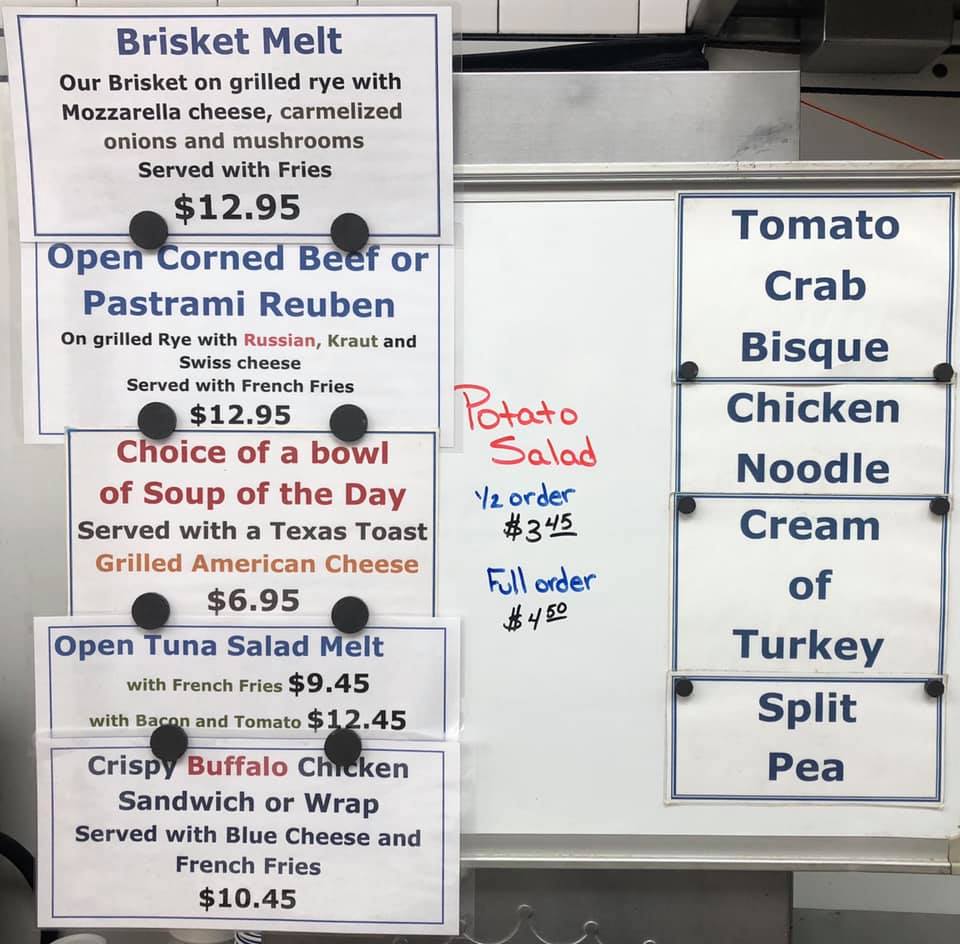 Brisket Melt
Our Brisket on grilled rye with
Mozzarella cheese, carmelized
onions and mushrooms
Served with Fries
$12.95
Open Corned Beef or
Pastrami Reuben
On grilled Rye with Russian, Kraut and
Swiss cheese
Served with French Fries
$12.95
Choice of a bowl
of Soup of the Day
Served with a Texas Toast
Grilled American Cheese
$6.95
Open Tuna Salad Melt
with French Fries $9.45
with Bacon and Tomato $12.45
Crispy Buffalo Chicken
Sandwich or Wrap
Served with Blue Cheese and
French Fries
$10.45
Potato
Salad
1/2 order
$3 45
Full order
$4 50
Tomato
Crab
Bisque
Chicken
Noodle
Cream
of
Turkey
Split
Pea